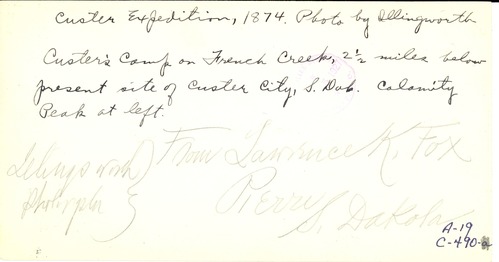 Custer Expedition, 1874. Photo by Illingworth
Custer's Camp on French Creek, 2½ miles below
present site of Custer City, S. Dak. Calamity
Peak at left.
From Lawrence K. Fox
Pierre
S. Dakota
A-19
C-490-a